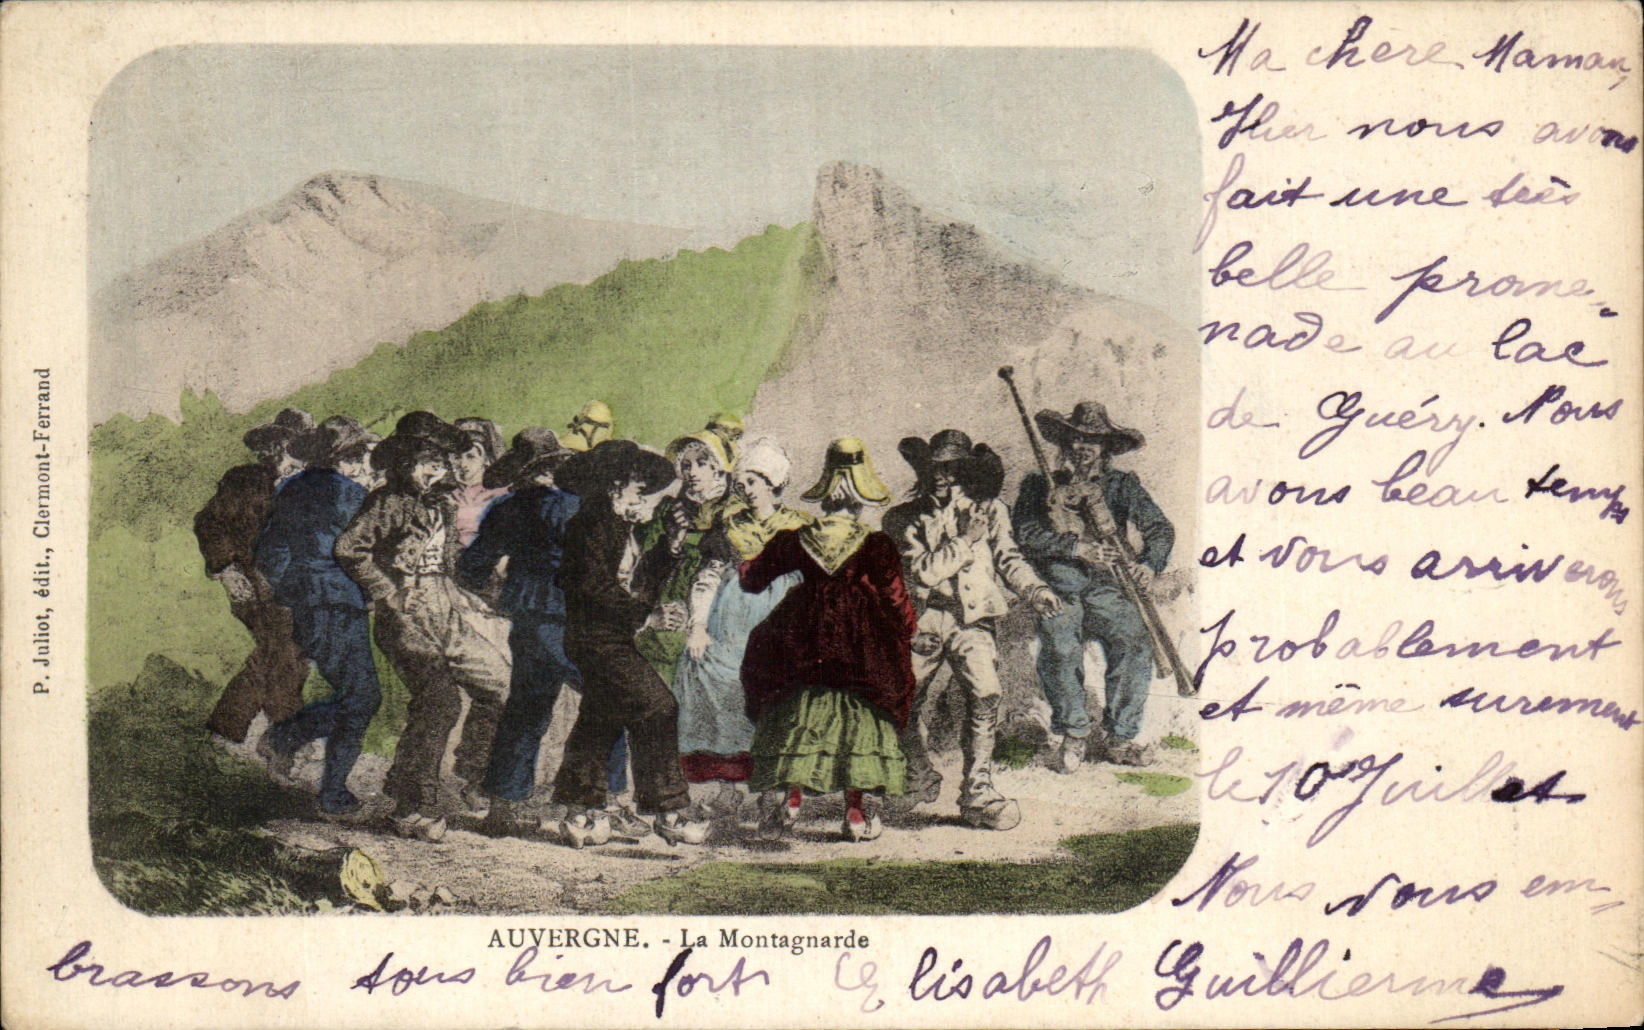 Ma chère Maman,
Hier nous avons
fait une très
belle prome-
nade au lac
de Guéry. Nous
avons beau temps
et vous arriverons
probablement
et même surement
le 10 Juillet
Nous vous em-
brassons tous bien fort Elisabeth Guillierme
AUVERGNE. - La Montagnarde
P. Juliot, édit., Clermont-Ferrand